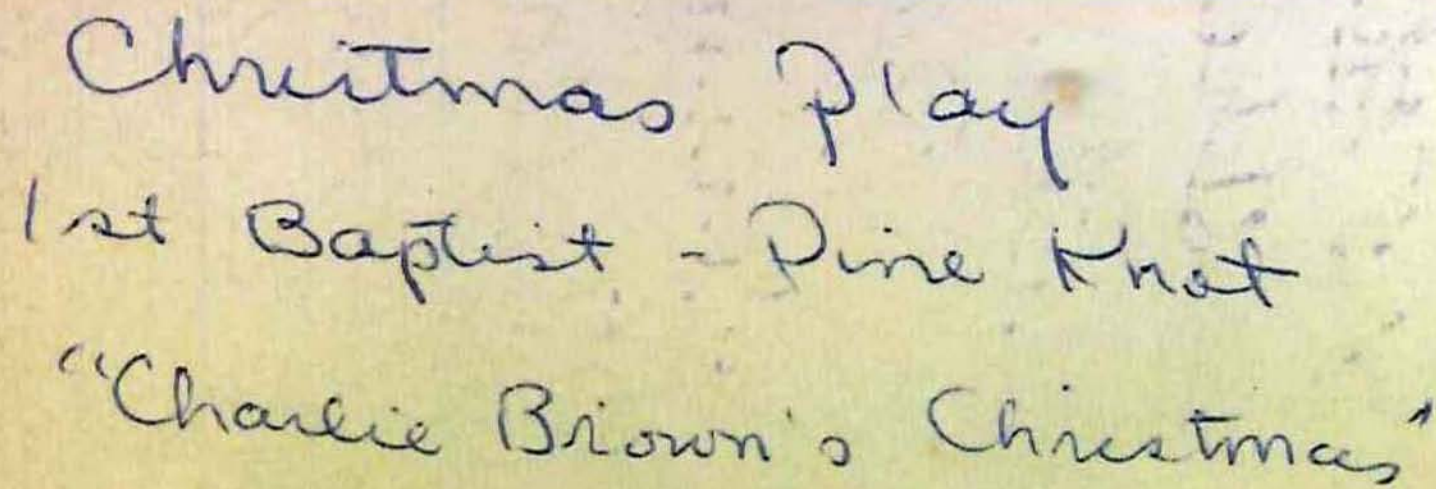 Christmas Play
1st Baptist - Pine Knot
"Charlie Brown's Christmas"